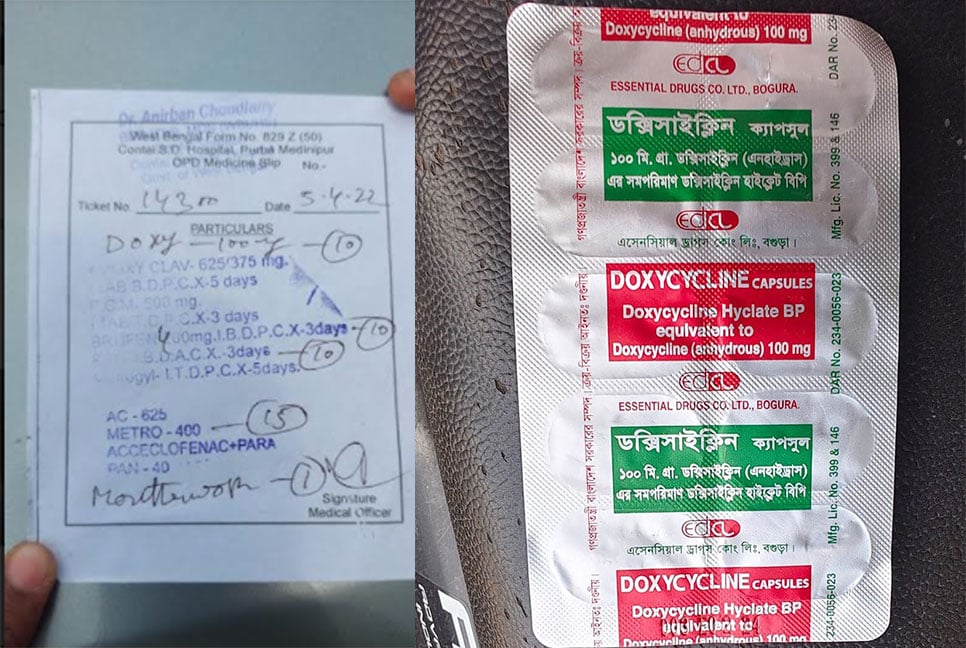 Dr. Anirban Choudhury
West Bengal Form No. 829 Z (50)
Contai S.D. Hospital, Purba Medinipur
Govt. of West Bengal
OPD Medicine Slip No.-
Ticket No. 14300 Date 5.4.22
PARTICULARS
Doxy — 100 mg — (10)
CLAV- 625/375 mg.
TAB B.D.P.C.X-5 days
500 mg.
P.C.X-3 days
400mg.I.B.D.P.C.X-3days — (10)
B.D.A.C.X.-3days — (10)
I.T.D.P.C.X-5days.
AC - 625
METRO - 400 — (15)
ACCECLOFENAC+PARA
PAN - 40
Mouthwash — (1)
Signature
Medical Officer
equivalent to
Doxycycline (anhydrous) 100 mg
EDCL
ESSENTIAL DRUGS CO. LTD., BOGURA.
ডক্সিসাইক্লিন ক্যাপসুল
১০০ মি. গ্রা. ডক্সিসাইক্লিন (এনহাইড্রাস)
এর সমপরিমাণ ডক্সিসাইক্লিন হাইক্লেট বিপি
EDCL
এসেনসিয়াল ড্রাগস কোং লিঃ, বগুড়া।
DOXYCYCLINE CAPSULES
Doxycycline Hyclate BP
equivalent to
Doxycycline (anhydrous) 100 mg
EDCL
ESSENTIAL DRUGS CO. LTD., BOGURA.
ডক্সিসাইক্লিন ক্যাপসুল
১০০ মি. গ্রা. ডক্সিসাইক্লিন (এনহাইড্রাস)
এর সমপরিমাণ ডক্সিসাইক্লিন হাইক্লেট বিপি
EDCL
এসেনসিয়াল ড্রাগস কোং লিঃ, বগুড়া।
DOXYCYCLINE CAPSULES
Doxycycline Hyclate BP
equivalent to
Doxycycline (anhydrous) 100 mg
গণপ্রজাতন্ত্রী বাংলাদেশ সরকারের সম্পদ। ক্রয়-বিক্রয়
গণপ্রজাতন্ত্রী বাংলাদেশ সরকারের সম্পদ। ক্রয়-বিক্রয় আইনতঃ দণ্ডনীয়।
আইনতঃ দণ্ডনীয়।
DAR No. 234
Mfg. Lic. No. 399 & 146
DAR No. 234-0056-023
Mfg. Lic. No. 399 & 146
234-0056-023